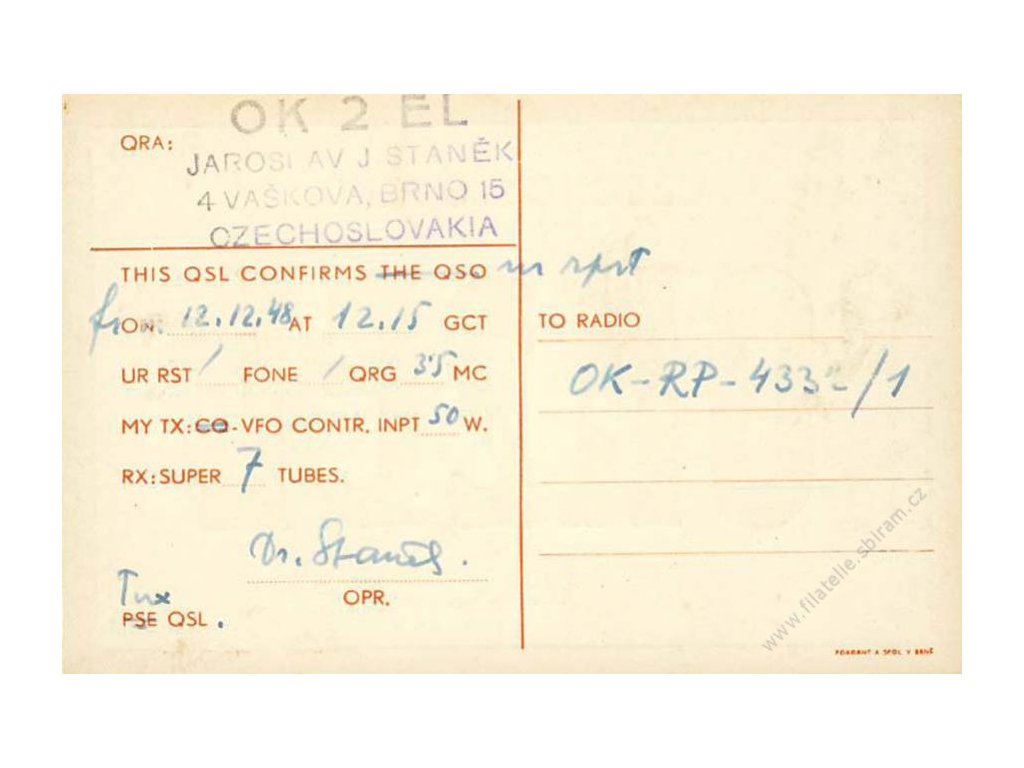 OK 2 EL
QRA:
JAROSLAV J STANĚK
4 VAŠKOVA, BRNO 15
CZECHOSLOVAKIA
THIS QSL CONFIRMS THE QSO ur rprt
from ON: 12.12.48 AT 12.15 GCT
UR RST / FONE / QRG 3'5 MC
MY TX: CO-VFO CONTR. INPT 50 W.
RX: SUPER 7 TUBES.
Dr. Staněk.
OPR.
Tnx
PSE QSL.
TO RADIO
OK-RP-433 /1
www.filatelie.sbiram.cz
A SPOL. V BRNĚ